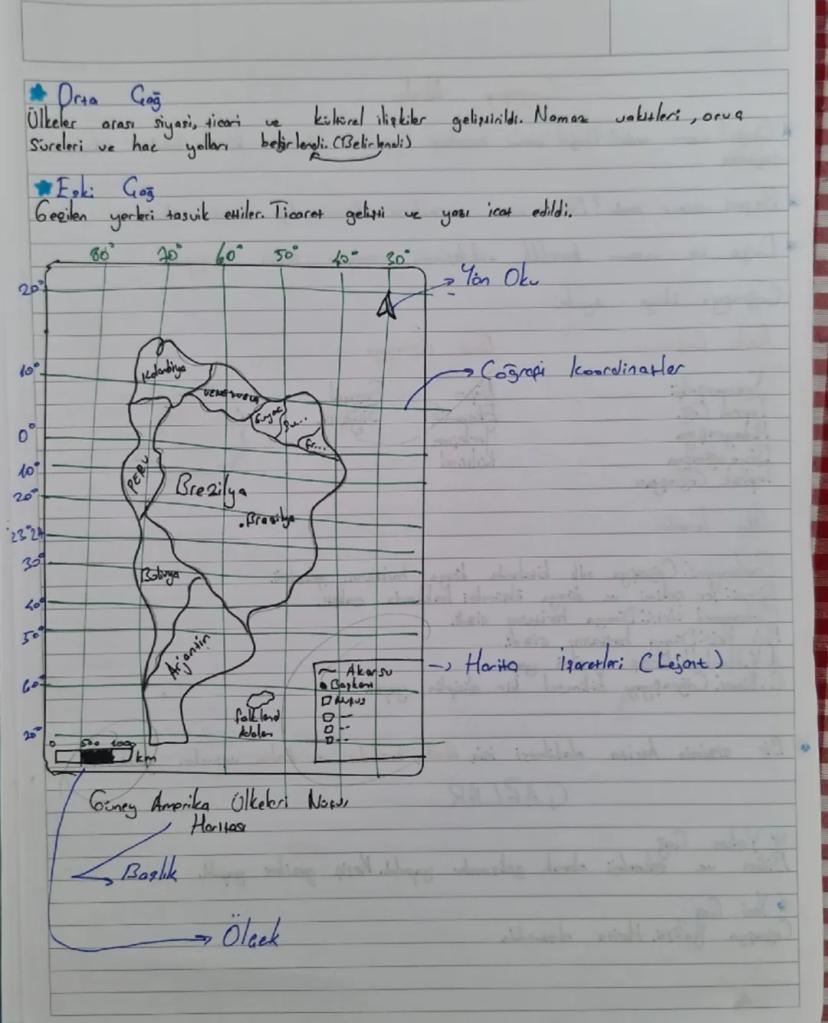 Orta Çağ
Ülkeler arası siyasi, ticari ve kültürel ilişkiler geliştirildi. Namaz vakitleri, oruç
Süreleri ve hac yolları belirlendi. (Belirlendi)
Eski Çağ
Gezilen yerleri tasvik ettiler. Ticaret gelişti ve yazı icat edildi.
80° 70° 60° 50° 40° 30°
20°
Yön Oku
10°
Kolombiya
Coğrafi Koordinatlar
VENEZUELA
Guyana
Su...
Fr...
0°
10°
PERU
Brezilya
20°
.Brasilya
23°27
30°
Bolivya
40°
50°
Arjantin
Akarsu
Harita İşaretleri (Lejant)
Başkent
60°
Nüfus
Falkland
Adaları
0 500 1000
km
Güney Amerika Ülkeleri Nüfus
Haritası
Başlık
Ölçek